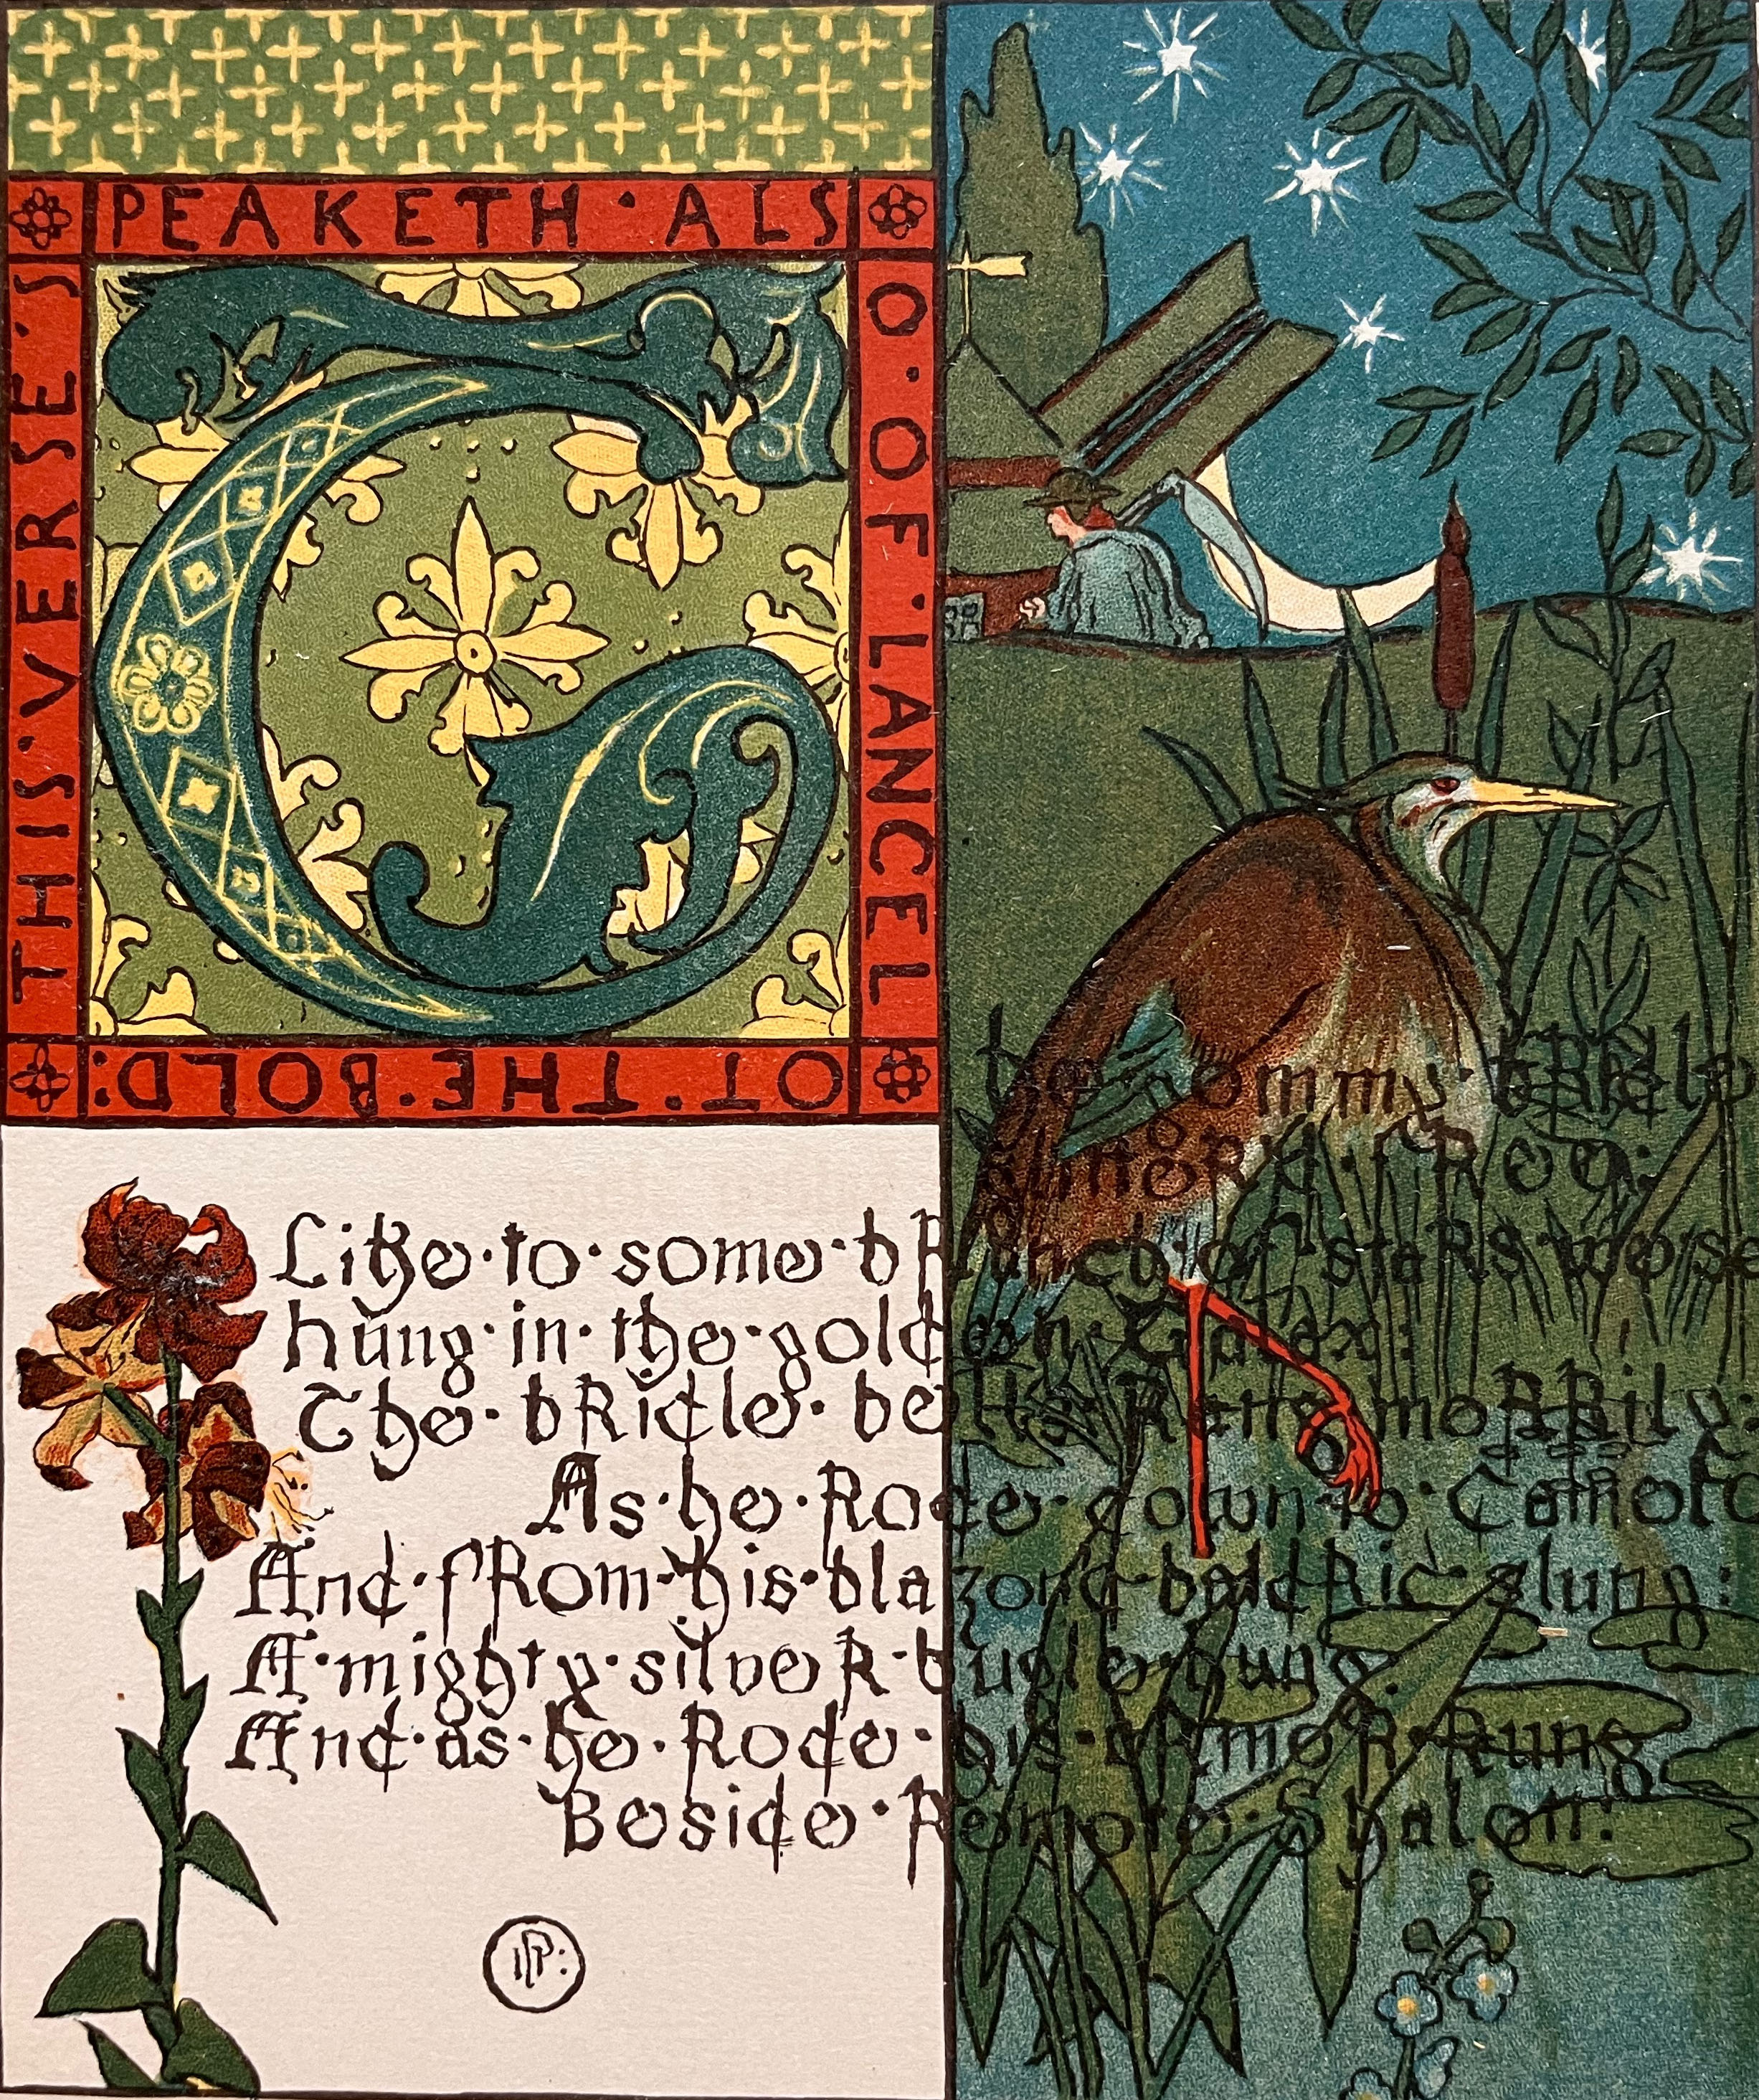 THIS·VERSE·S
PEAKETH·ALS
O·OF·LANCEL
OT·THE·BOLD:
The·gemmy·bridle
glitterd·free:
Like·to·some·branch·of·stars we·see
hung·in·the·golden·Galax:
The·bridle·bells·Rang·merrily:
As·he·Rode·down·to·Camelot
And·from·his·blazond·baldric·slung:
A·mighty·silver·bugle·hung:
And·as·he·Rode·his·armor·Rung
Beside·Remote·Shalott: